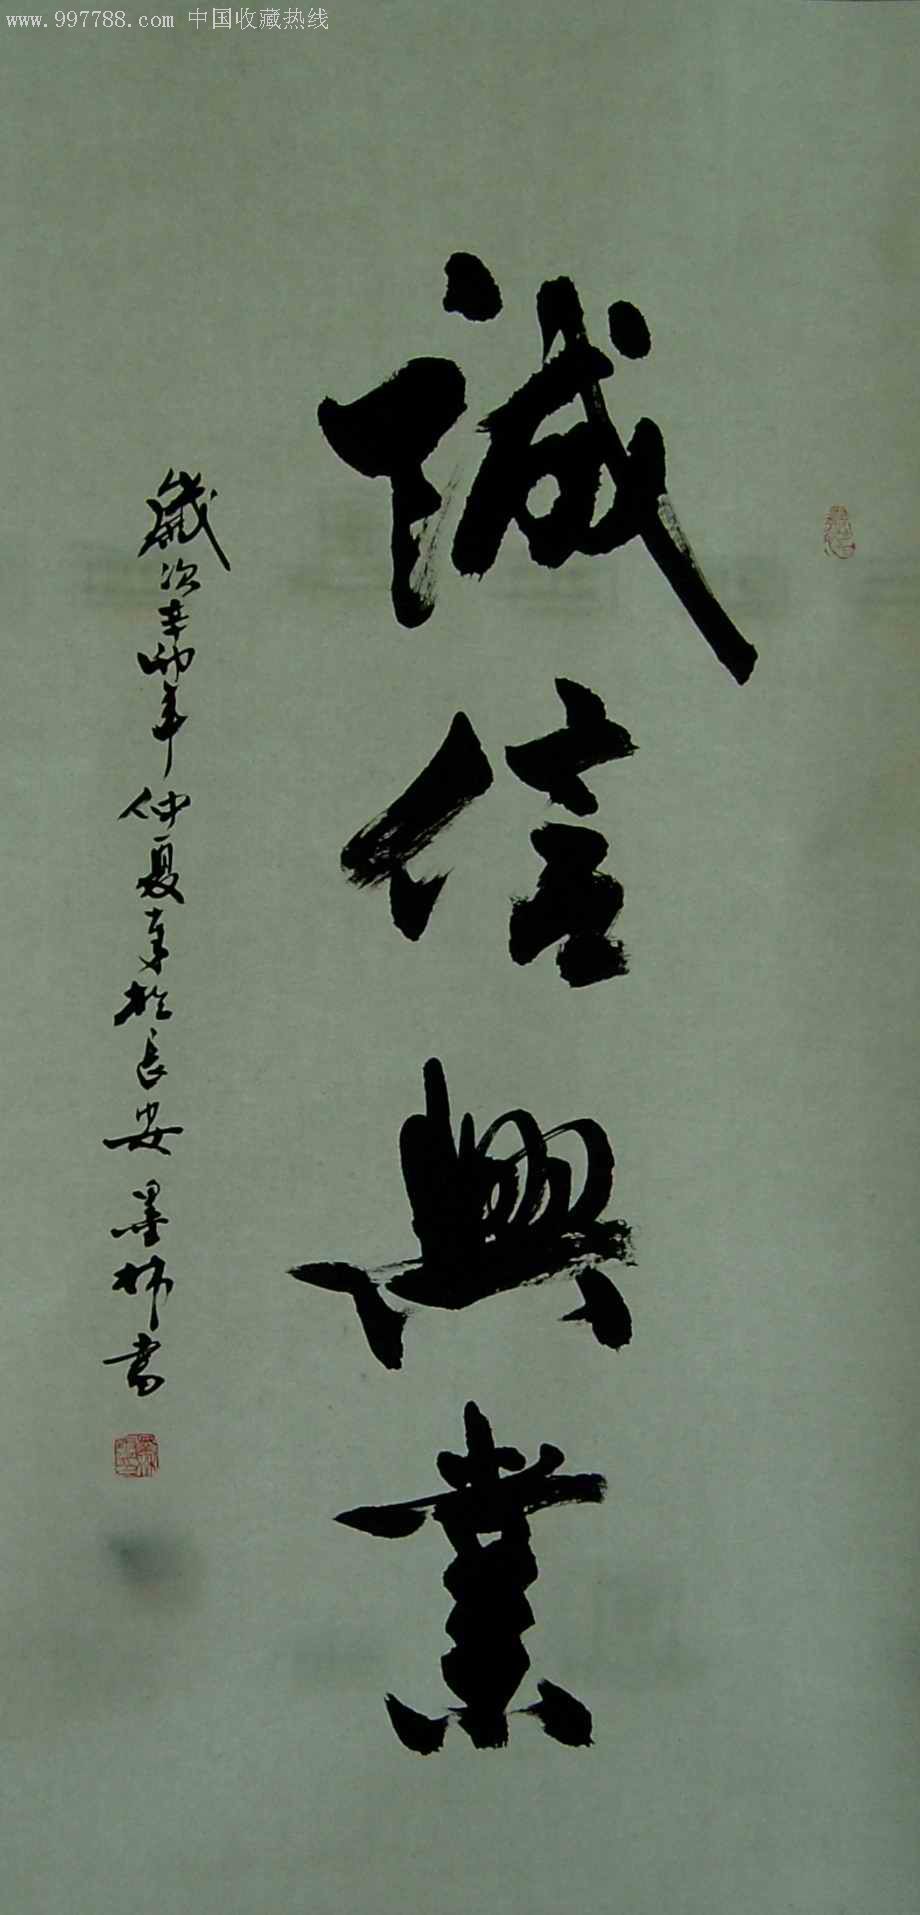 www.997788.com 中国收藏热线
誠信興業
歲次辛卯年仲夏章於長安墨林書